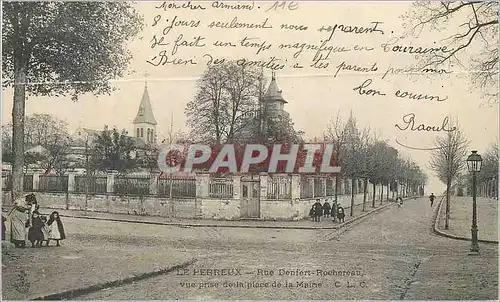 Mon cher armand. 11€
8 jours seulement nous separent.
Il fait un temps magnifique en Touraine
Bien des amitiés à tes parents
bon cousin
Raoul
CPARAMA
LE PERREUX — Rue Denfert-Rochereau,
vue prise de la place de la Mairie C. L. C.